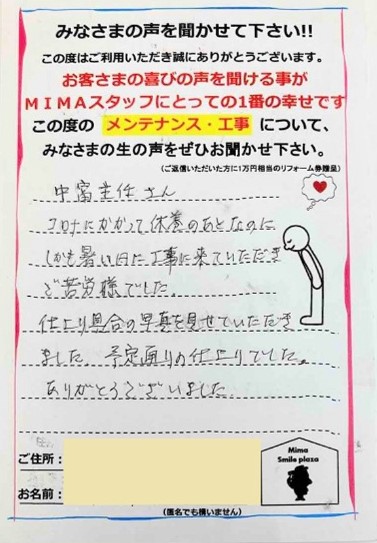 みなさまの声を聞かせて下さい!!
この度はご利用いただき誠にありがとうございます。
お客さまの喜びの声を聞ける事が
MIMAスタッフにとっての1番の幸せです
この度の メンテナンス・工事 について、
みなさまの生の声をぜひお聞かせ下さい。
(ご返信いただいた方に1万円相当のリフォーム券贈呈)
中富主任さん
コロナにかかって休養のあとなのに
しかも暑い日に工事に来ていただき
ご苦労様でした。
仕上り具合の写真を見せていただき
ました。予定通りの仕上りでした。
ありがとうございました
ご住所:
お名前:
(匿名でも構いません)
Mima
Smile plaza